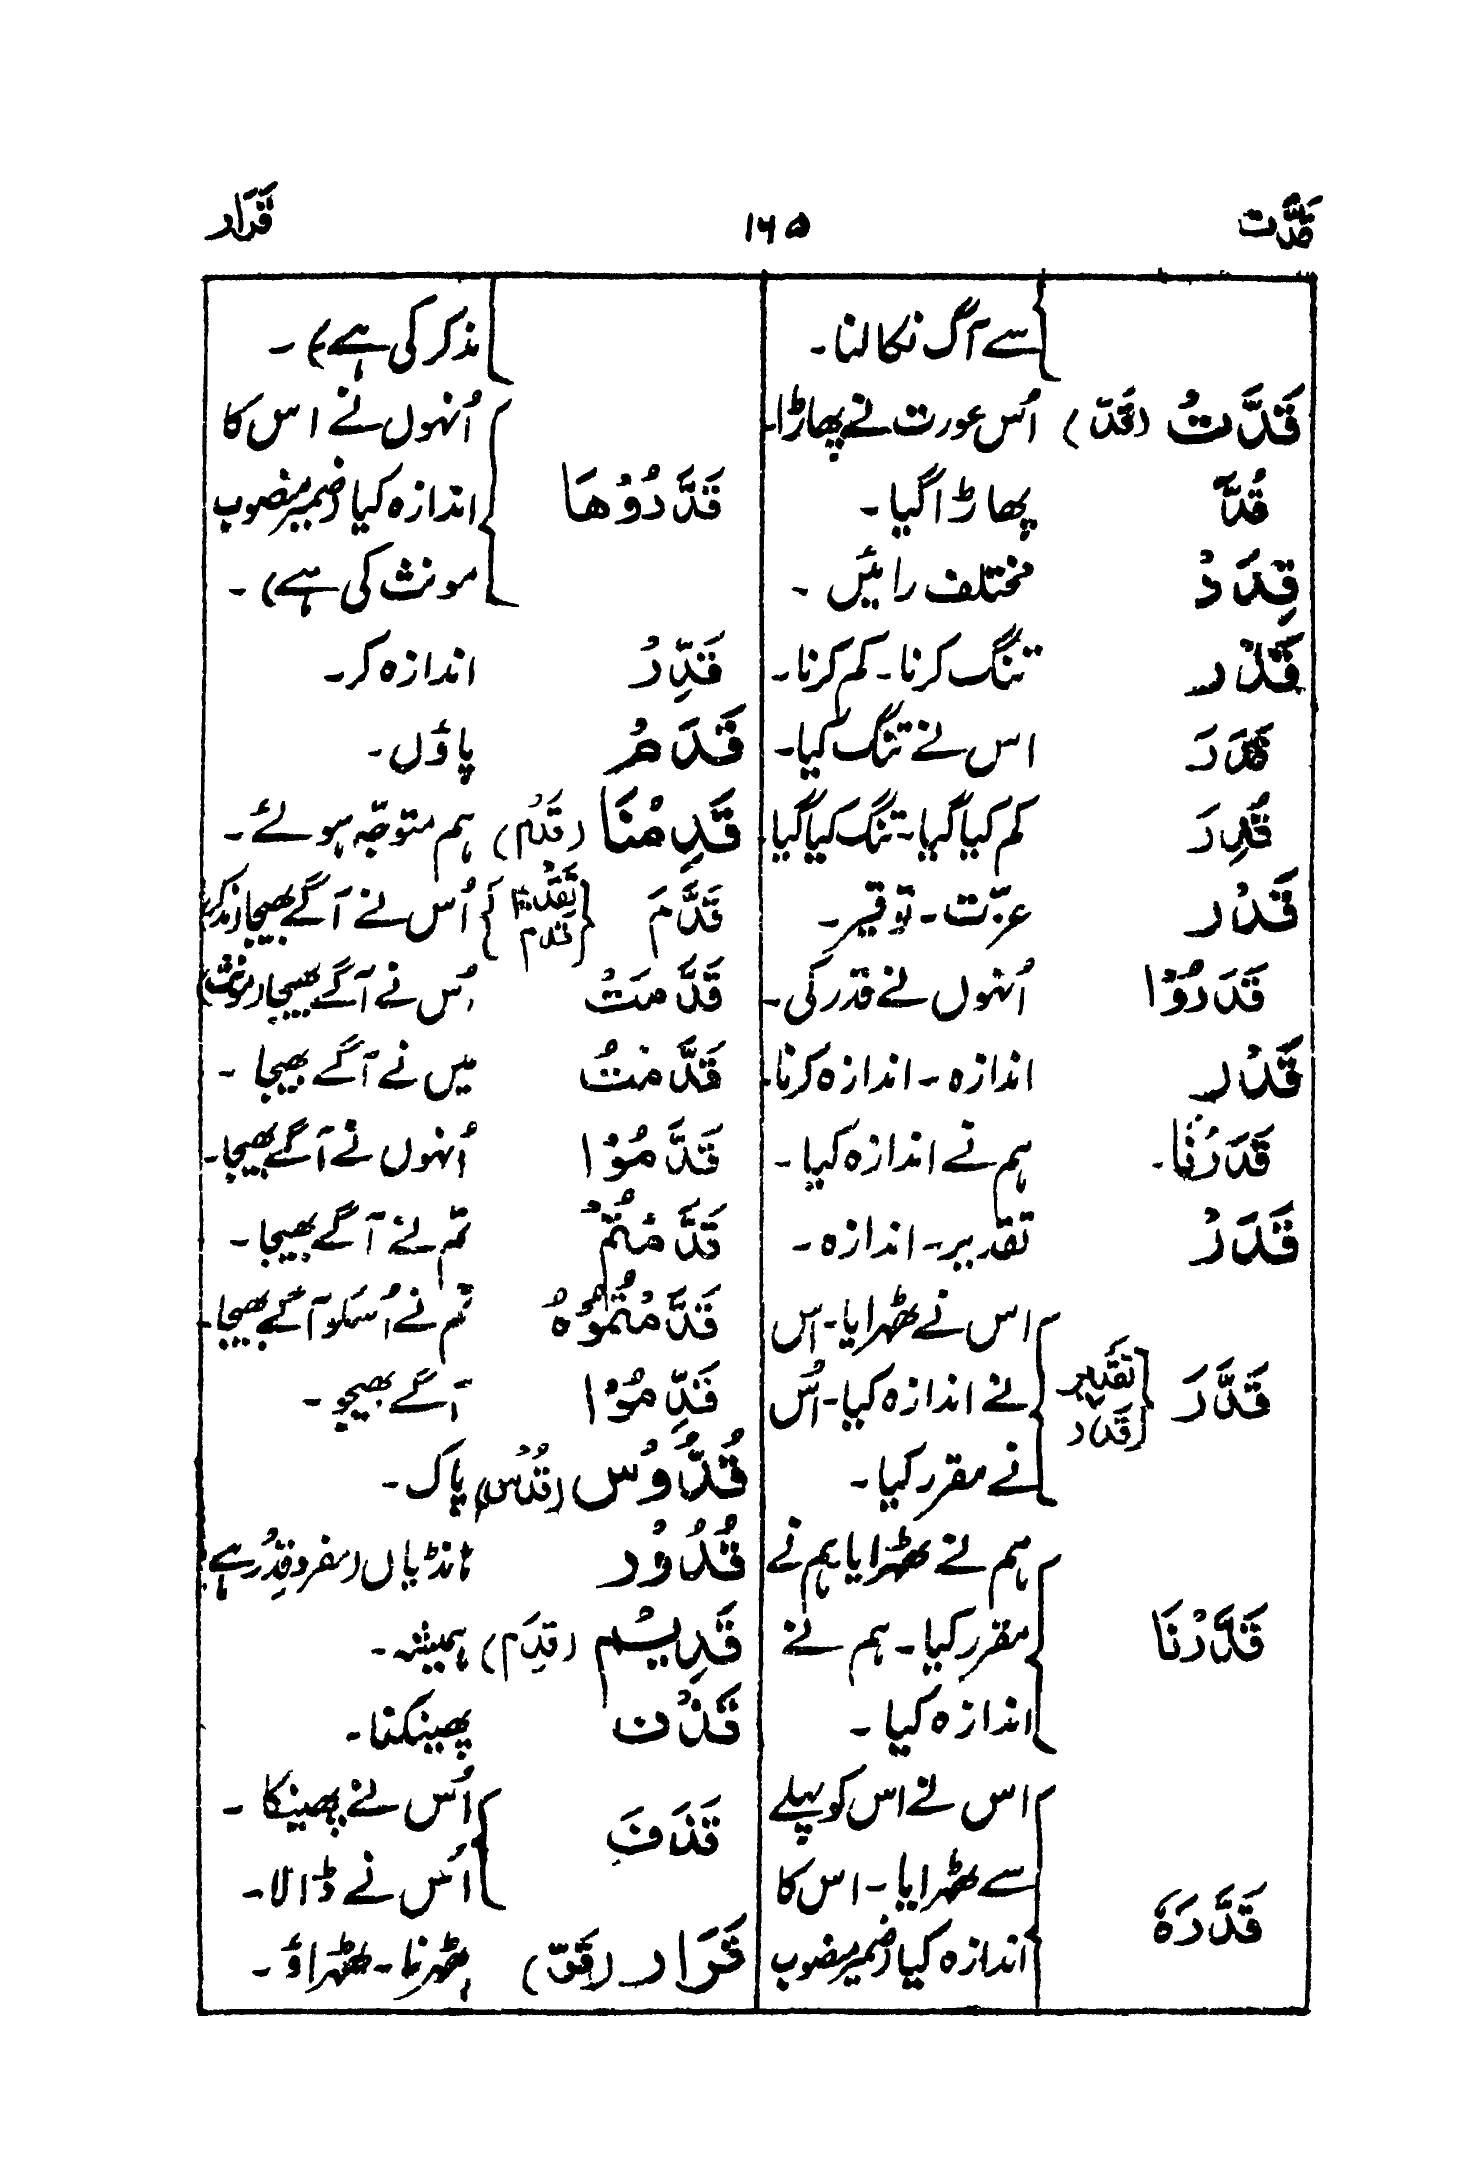 قَدَّت ۱۶۵ قَرَار
سے آگ نکالنا۔
قَدَّتْ (قَدّ) اُس عورت نے پھاڑا۔
قُدَّ پھاڑا گیا۔
قِدَدْ مختلف رائیں ۔
قَدْر تنگ کرنا۔ کم کرنا۔
قَدَرَ اس نے تنگ کیا۔
قُدِرَ کم کیا گیا۔ تنگ کیا گیا
قَدْر عزّت۔ توقیر۔
قَدَرُوْا اُنہوں نے قدر کی۔
قَدْر اندازہ۔ اندازہ کرنا۔
قَدَرْنَا۔ ہم نے اندازہ کیا۔
قَدَرْ تقدیر۔ اندازہ۔
اس نے ٹھہرایا۔ اس
قَدَّرَ {تَقْدِیر قَدَر} نے اندازہ کیا۔ اُس
نے مقرر کیا۔
ہم نے ٹھہرایا ہم نے
قَدَّرْنَا مقرر کیا۔ ہم نے
اندازہ کیا۔
اس نے اس کو پہلے
سے ٹھہرایا۔ اس کا
قَدَّرَہٗ اندازہ کیا (ضمیر منصوب
مذکر کی ہے)۔
اُنہوں نے اس کا
قَدَّرُوْهَا اندازہ کیا (ضمیر منصوب
مونث کی ہے)۔
قَدِّرْ اندازہ کر۔
قَدَمْ پاؤں۔
قَدِمْنَا (قَدْم) ہم متوجّہ ہوئے۔
قَدَّمَ {تَقْدِیم قدم} اُس نے آگے بھیجا (مذکر)
قَدَّمَتْ اُس نے آگے بھیجا (مونث)
قَدَّمْتُ میں نے آگے بھیجا ۔
قَدَّمُوْا اُنہوں نے آگے بھیجا۔
قَدَّمْتُمْ تم نے آگے بھیجا۔
قَدَّمْتُمُوْہُ تم نے اُسکو آگے بھیجا۔
قَدِّمُوْا آگے بھیجو ۔
قُدُّوْس (قُدْس) پاک۔
قُدُوْر ہانڈیاں (مفرد قِدْر ہے)
قَدِیْم (قِدَم) ہمیشہ۔
قَذْف پھینکنا۔
اُس نے پھینکا ۔
قَذَفَ
اُس نے ڈالا۔
قَرَار (قَرّ) ٹھہرنا۔ ٹھہراؤ۔